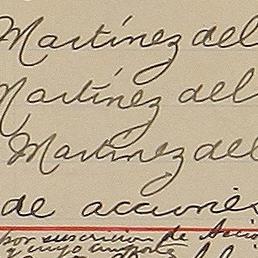 Martínez del
Martínez del
Martínez del
de acciones
por suscrición de Accio
y cuyo importe